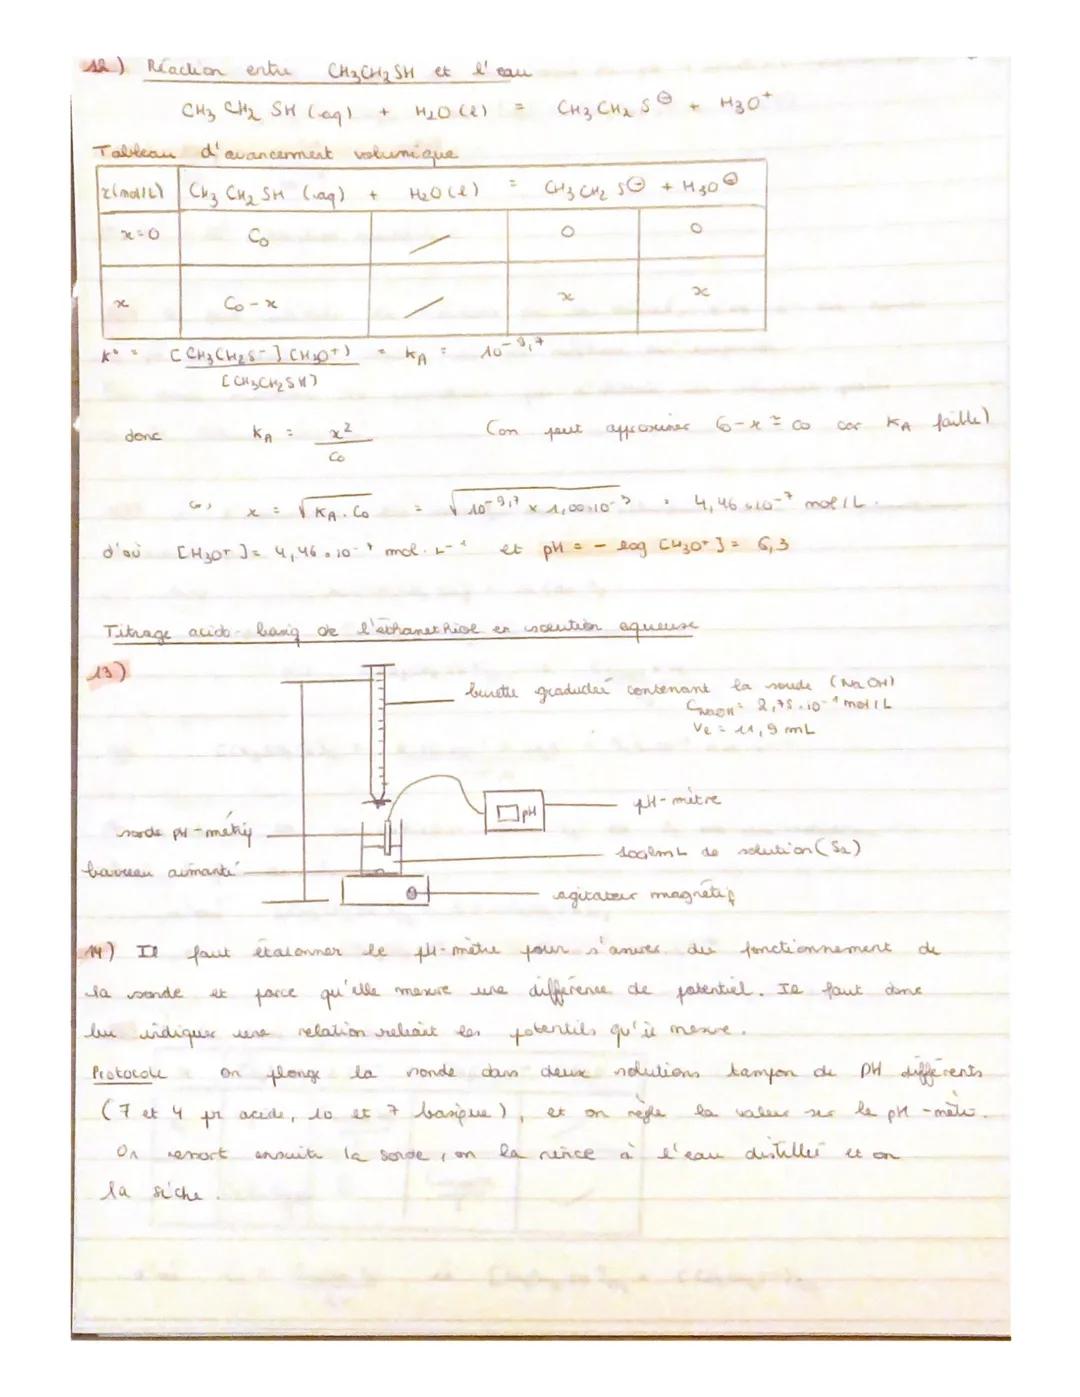 12) Réaction entre CH3CH2SH et l'eau
CH3 CH2 SH (aq) + H2O (l) = CH3 CH2 S⊖ + H3O+
Tableau d'avancement volumique
x(mol/L) CH3 CH2 SH (aq) + H2O (l) = CH3 CH2 S⊖ + H3O⊕
x=0 C0 / 0 0
x C0 - x / x x
K° = [CH3CH2S-] [H3O+] / [CH3CH2SH] = KA = 10^-9,7
donc KA = x²/C0 (on peut approximer C0-x ≈ C0 car KA faible)
x = √KA.C0 = √10^-9,7 x 1,00.10^-3 = 4,46.10^-7 mol/L.
d'où [H3O+] = 4,46.10^-7 mol.L^-1 et pH = - log [H3O+] = 6,3
Titrage acido-basiq de l'éthanethiol en solution aqueuse
13)
burette graduée contenant la soude (NaOH)
CNaOH = 2,75.10^-1 mol/L
Ve = 11,9 mL
pH
pH-mètre
sonde pH-métriq
mL de solution (S2)
barreau aimanté
agitateur magnétiq
14) Il faut étalonner le pH-mètre pour s'assurer du fonctionnement de
la sonde et parce qu'elle mesure une différence de potentiel. Il faut donc
lui indiquer une relation reliant les potentiels qu'il mesure.
Protocole : on plonge la sonde dans deux solutions tampon de pH différents
(7 et 4 pr acide, 10 et 7 basique), et on règle la valeur sur le pH-mètre.
On ressort ensuite la sonde, on la rince à l'eau distillée et on
la sèche.